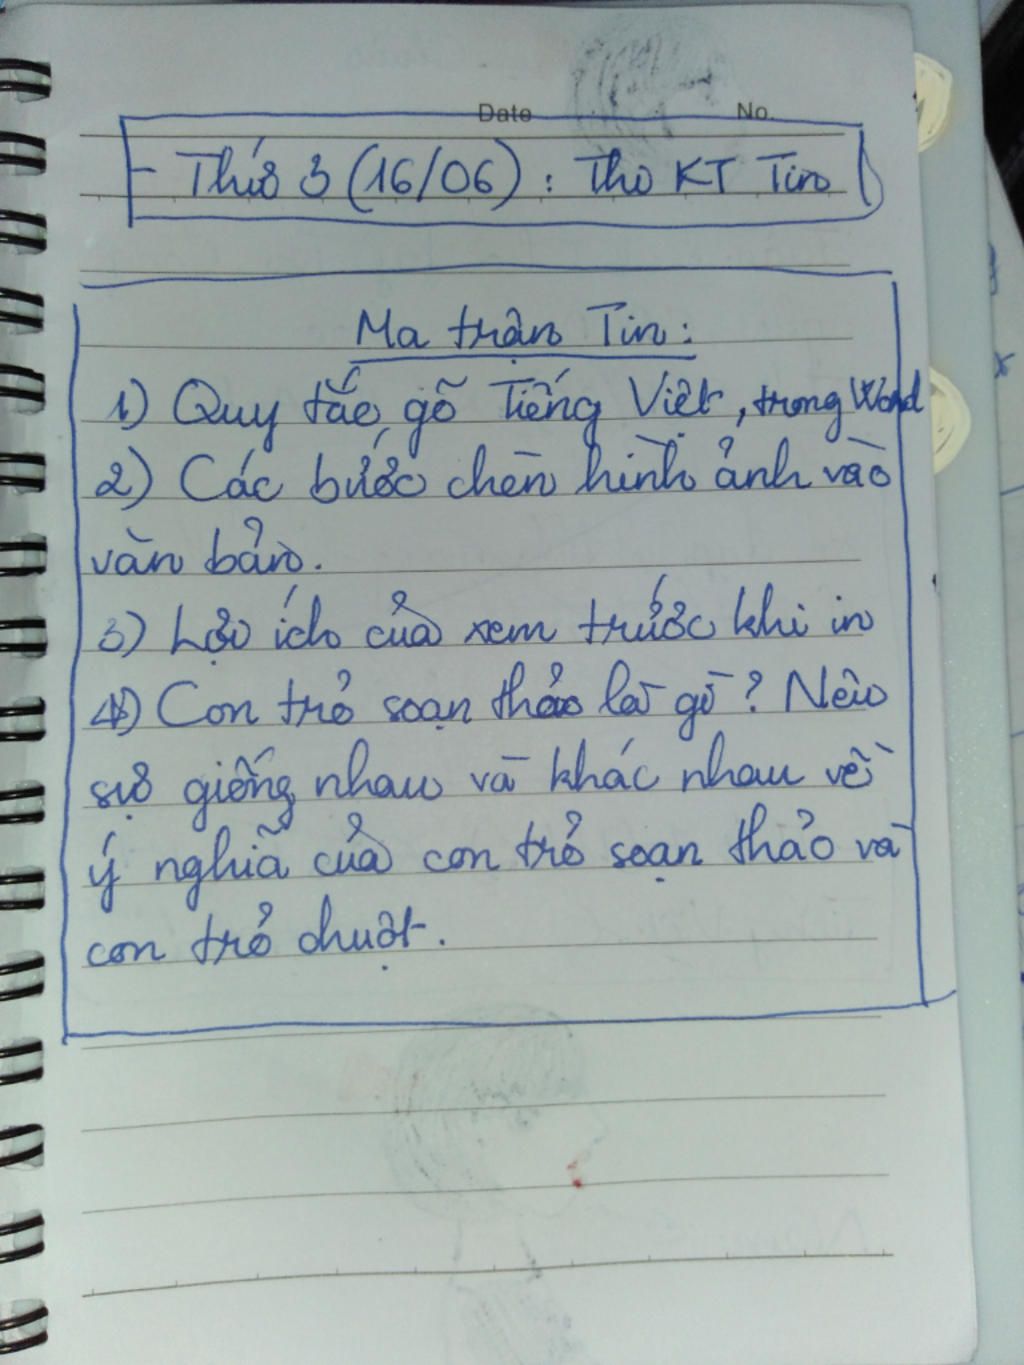 Date No.
- Thứ 3 (16/06) : Thi KT Tin
Ma trận Tin:
1) Quy tắc gõ Tiếng Việt, trong Word
2) Các bước chèn hình ảnh vào
văn bản.
3) Lợi ích của xem trước khi in
4) Con trỏ soạn thảo là gì? Nêu
sự giống nhau và khác nhau về
ý nghĩa của con trỏ soạn thảo và
con trỏ chuột.